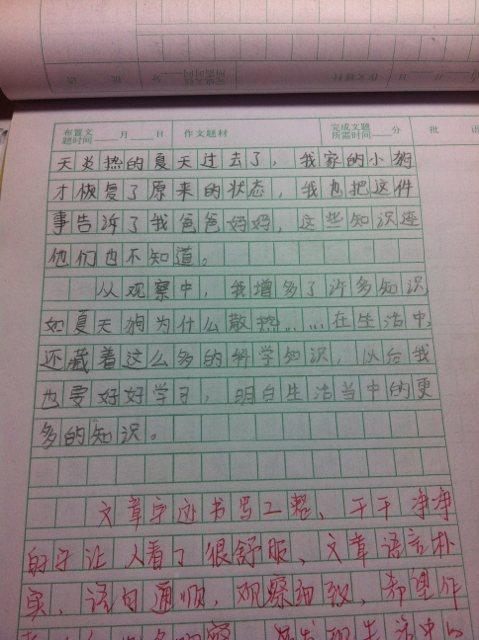 布置文
题时间 月 日 作文题材 完成文题
所需时间 分 批 语
天炎热的夏天过去了，我家的小狗
才恢复了原来的状态，我也把这件
事告诉了我爸爸妈妈，这些知识连
他们也不知道。
从观察中，我增多了许多知识，
如夏天狗为什么散热……在生活中，
还藏着这么多的科学知识，以后我
也要好好学习，明白生活当中的更
多的知识。
文章字迹书写工整、干干净净
的字让人看了很舒服、文章语言朴
实、语句通顺，观察细致，希望作